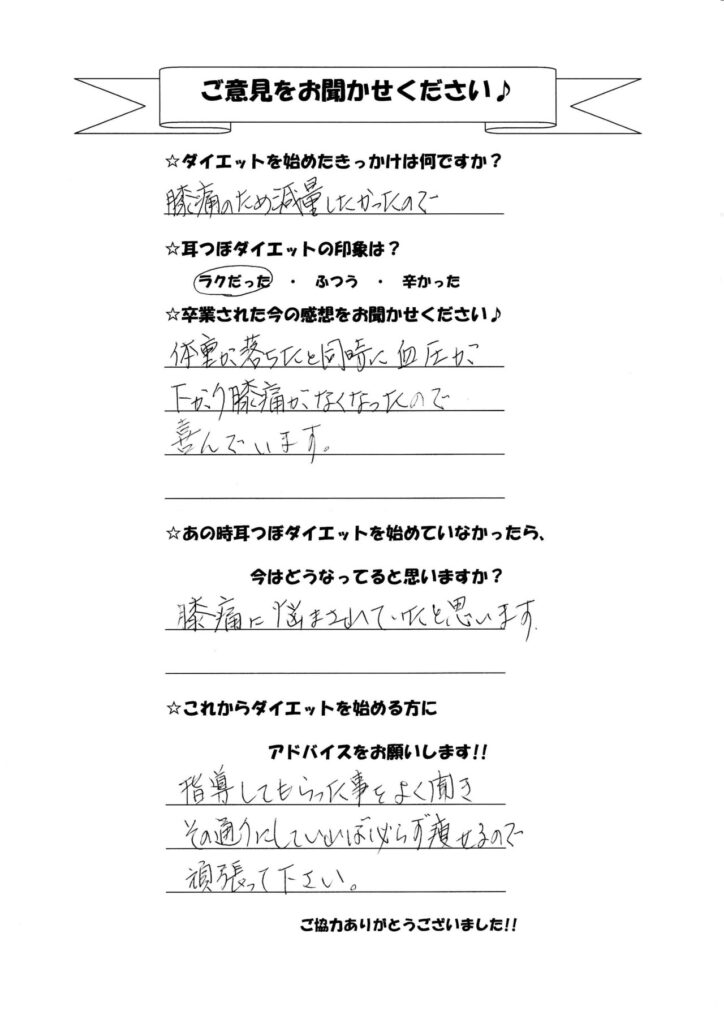 ご意見をお聞かせください♪
☆ダイエットを始めたきっかけは何ですか？
膝痛のため減量したかったので
☆耳つぼダイエットの印象は？
ラクだった ・ ふつう ・ 辛かった
☆卒業された今の感想をお聞かせください♪
体重が落ちたと同時に血圧が
下がり膝痛がなくなったので
喜んでいます。
☆あの時耳つぼダイエットを始めていなかったら、
今はどうなってると思いますか？
膝痛に悩まされていたと思います。
☆これからダイエットを始める方に
アドバイスをお願いします!!
指導してもらった事をよく聞き
その通りにしていれば必らず痩せるので
頑張って下さい。
ご協力ありがとうございました!!